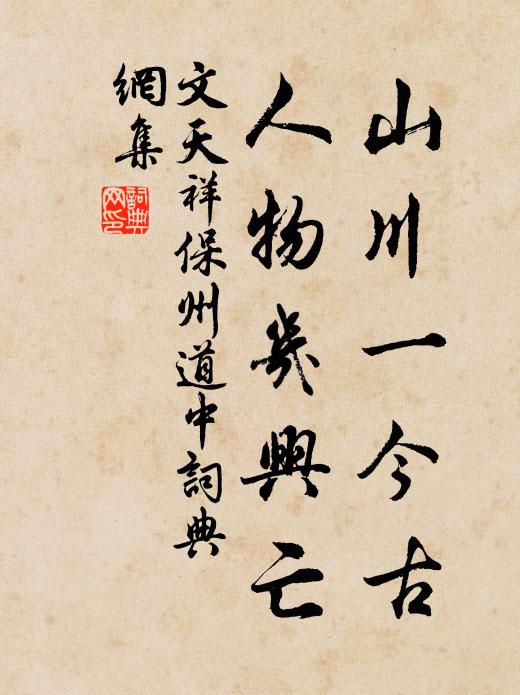 山川一今古
人物幾興亡
文天祥保州道中詞典
網集
詞典網印